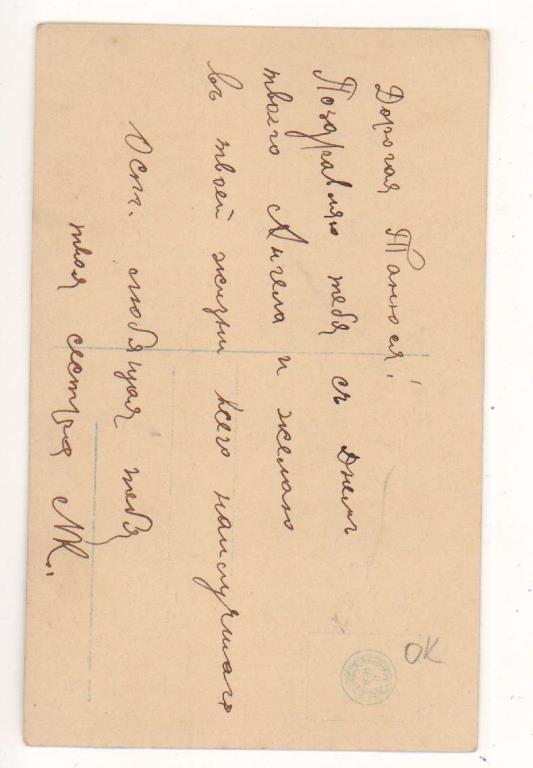 Дорогая Танюся!
Поздравляю тебя съ Днемъ
твоего Ангела и желаю
въ твоей жизни всего наилучшаго
Ост. любящая тебя
твоя сестра МК.
OK